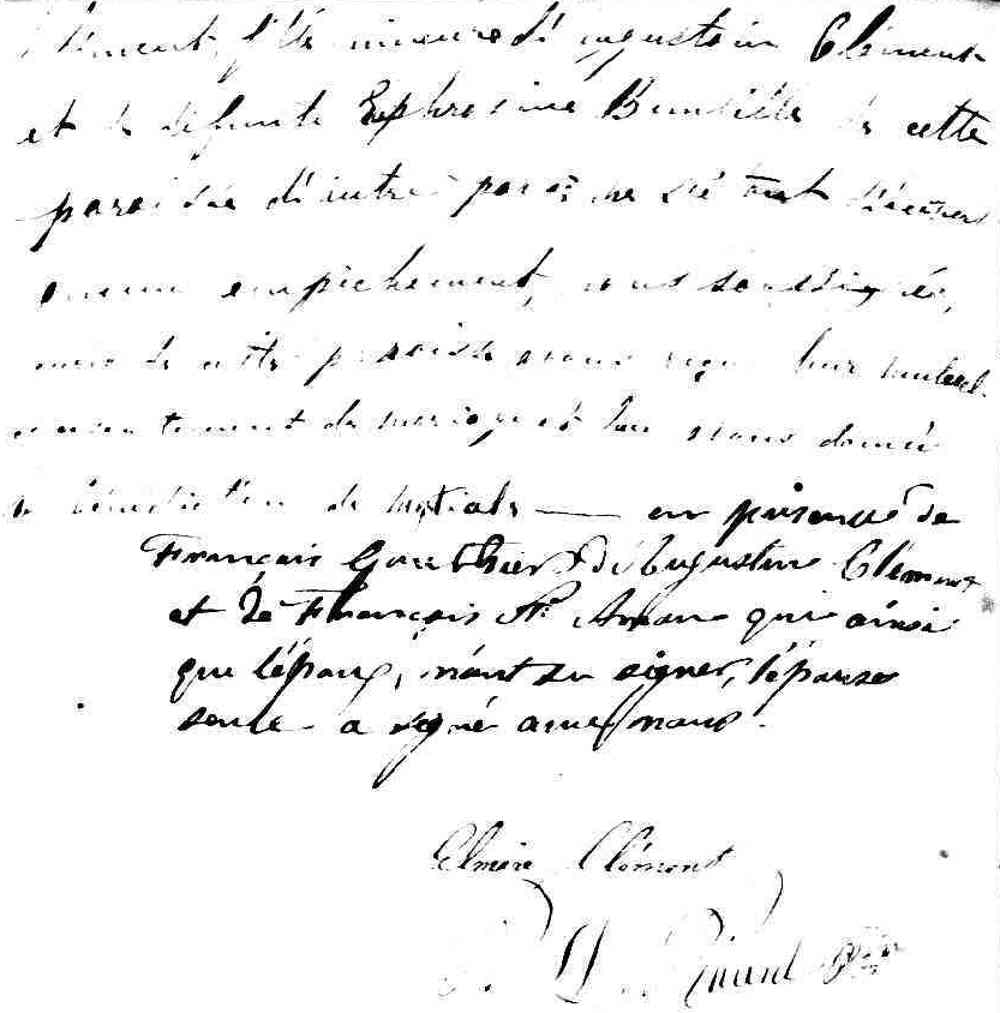 Clément, fille mineure d'Augustin Clément
et de défunte Ephrosine de cette
paroisse d'autre part; ne s'étant découvert
aucun empêchement, nous soussigné,
de cette paroisse avons reçu leur mutuel
consentement de mariage et leur avons donné
la bénédiction nuptiale — en présence de
François Gauthier d'Augustin Clément
et de François St Amour qui ainsi
que l'époux, n'ont su signer, l'épouse
seule a signé avec nous.
Elmire Clément
Ptre